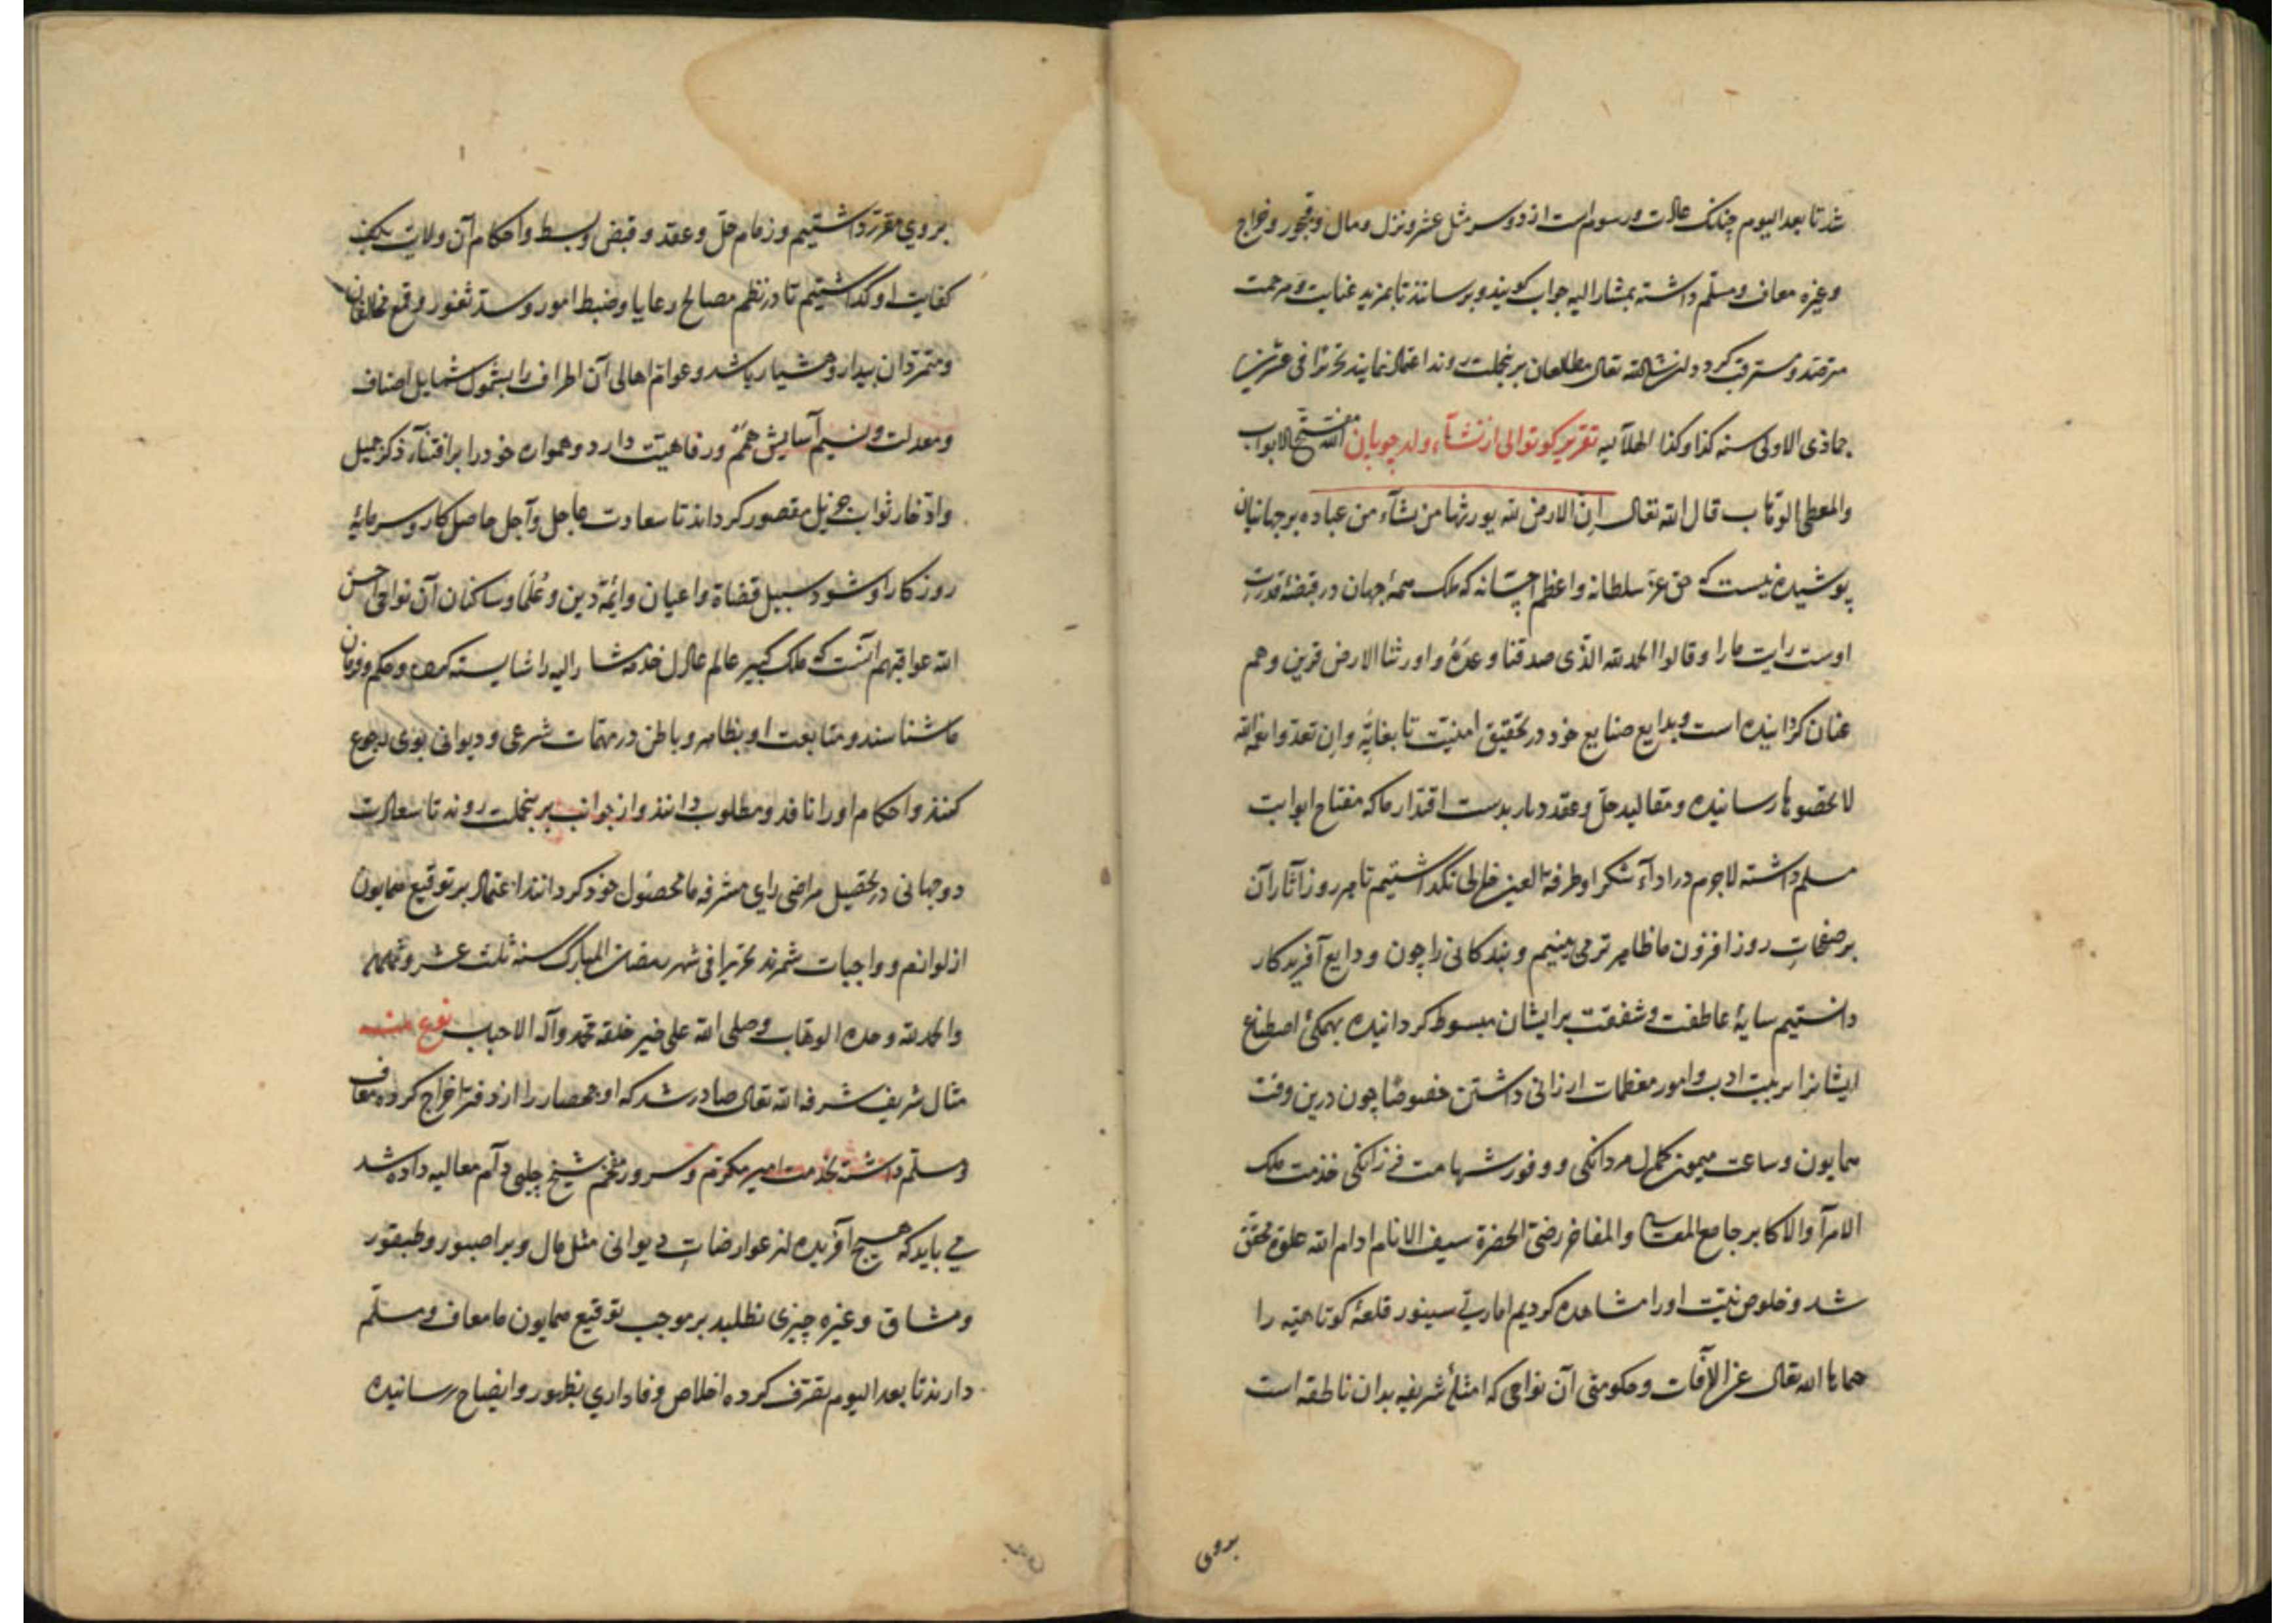 شد تا بعد الیوم چنانک عادت و رسوم است از دو سر مثل عشر و نزل و مال و قبجور و خراج
و غیره معاف و مسلم داشته بمشار الیه جواب کویند و برسانند تا بمزید عنایت و مرحمت
کردد ان شا الله تعالی مطلعان برینجملت روند اعتماد نمایند تحریرا فی عشرین
جماذی الاولی سنه کذا و کذا الهلالیه تقریر کوتوالی از نشآء ولد چوبان الله مفتح الابواب
والمعطی الوهاب قال الله تعالی ان الارض لله یورثها من یشآء من عباده بر جهانیان
پوشیده نیست که حق عز سلطانه و اعظم که ملک همه جهان در قبضه قدرت
اوست رایت ما را و قالوا الحمد لله الذی صدقنا وعده و اورثنا الارض قرین و هم
عنان کردانیده است و بدایع صنایع خود در تحقیق امنیت تا بغایه و ان تعدوا نعمة الله
لا تحصوها رسانیده و مقالید حل و عقد دیار بدست اقتدار ما که مفتاح ابوابت
مسلم داشته لاجرم در ادآء شکر او طرفة العین خللی نگذاشتیم تا هر روز آثار آن
بر صفحات روز افزون ما ظاهرتر می بینیم و بندکانی را چون ودایع آفریدکار
دانستیم سایهٔ عاطفت و شفقت بر ایشان مبسوط کردانیده بهمکی اصطناع
ایشانرا بتربیت ادب و امور معظمات ارزانی داشتن خصوصا چون درین وقت
همایون و ساعت میمون کمال مردانکی و وفور شهامت فرزانکی خدمت ملک
الامرآ والاکابر جامع و المفاخر رضی الحضرة سیف الانام ادام الله علوه محقق
شد و خلوص نیت او را مشاهده کردیم امارت سینور قلعهٔ کوتاهیه را
حماها الله تعالی عن الآفات و حکومتی آن نواحی که امثلهٔ شریفه بدان ناطقه است
بروی
بروی مقرر داشتیم و زمام حل و عقد و قبض و بسط و احکام آن ولایت بکف
کفایت او گذاشتیم تا در نظم مصالح رعایا و ضبط امور و سد ثغور و قمع مخالفان
و متمردان بیدار و هشیار باشد و عوام اهالی آن اطراف را بشمول شمایل اصناف
و معدلت و نسیم آسایش و رفاهیت دارد و همواره خود را بر اقتنآء ذکر جمیل
و ادخار ثواب جزیل مقصور کرداند تا سعادت عاجل و آجل حاصل کار و سرمایهٔ
روزکار او شود سبیل قضاة و اعیان و ایمهٔ دین و علما و ساکنان آن نواحی احسن
الله عواقبهم آنست که ملک کبیر عالم عادل خدمت مشار الیه را شایسته و حکم و فرمان
ما شناسند و متابعت او بظاهر و باطن در مهمات شرعی و دیوانی بوی رجوع
کنند و احکام او را نافذ و مطلوب دانند و از جوانب برینجملت روند تا سعادت
دو جهانی در تحصیل مراضی رای مشرفه ما محصول خود کردانند اعتماد بر توقیع همایون
از لوازم و واجبات شمرند تحریرا فی شهر رمضان المبارک سنه ثلث عشر و
والحمد لله وحده الوهاب و صلی الله علی خیر خلقه محمد و آله الاحباب نوع منه
مثال شریف شرفه الله تعالی صادر شد که اوجحصار را از دفتر اخراج کرده معاف
و مسلم داشته بخدمت امیر مکرم و سرور مفخم شیخ چلبی دام معالیه داده شد
می باید که هیچ آفریده از عوارضات دیوانی مثل مال و
و مشاق و غیره چیزی نطلبد بر موجب توقیع همایون ما معاف و مسلم
دارند تا بعد الیوم تصرف کرده اخلاص و فاداری بظهور و ایضاح رسانیده